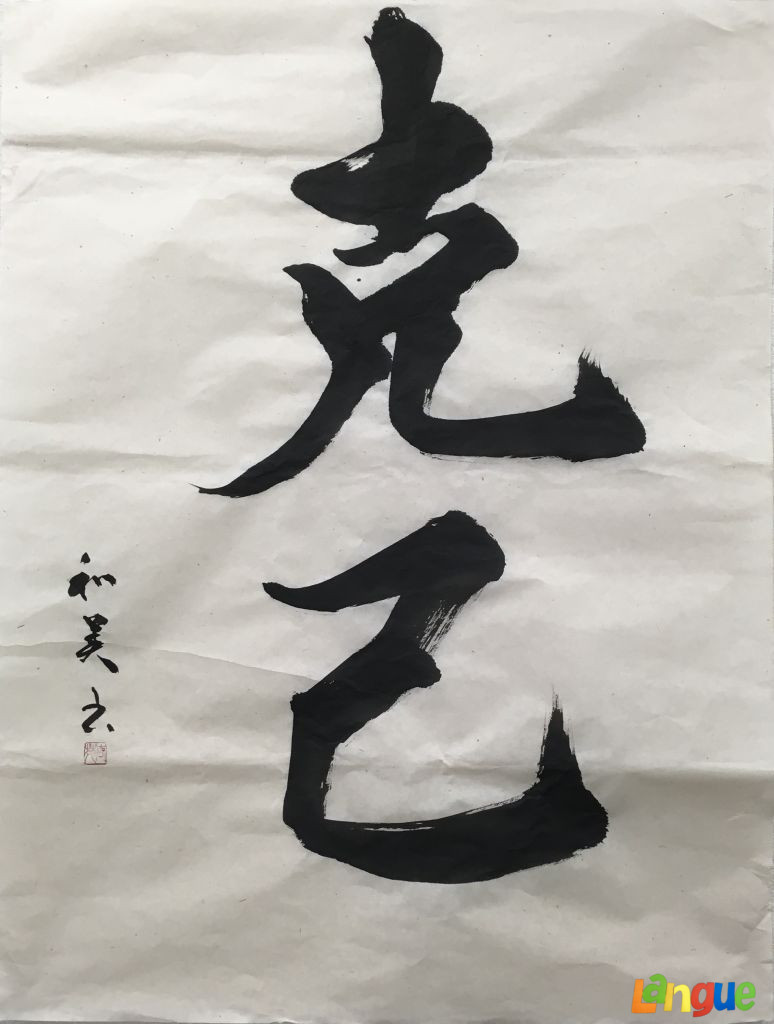 克己
和美書
Langue